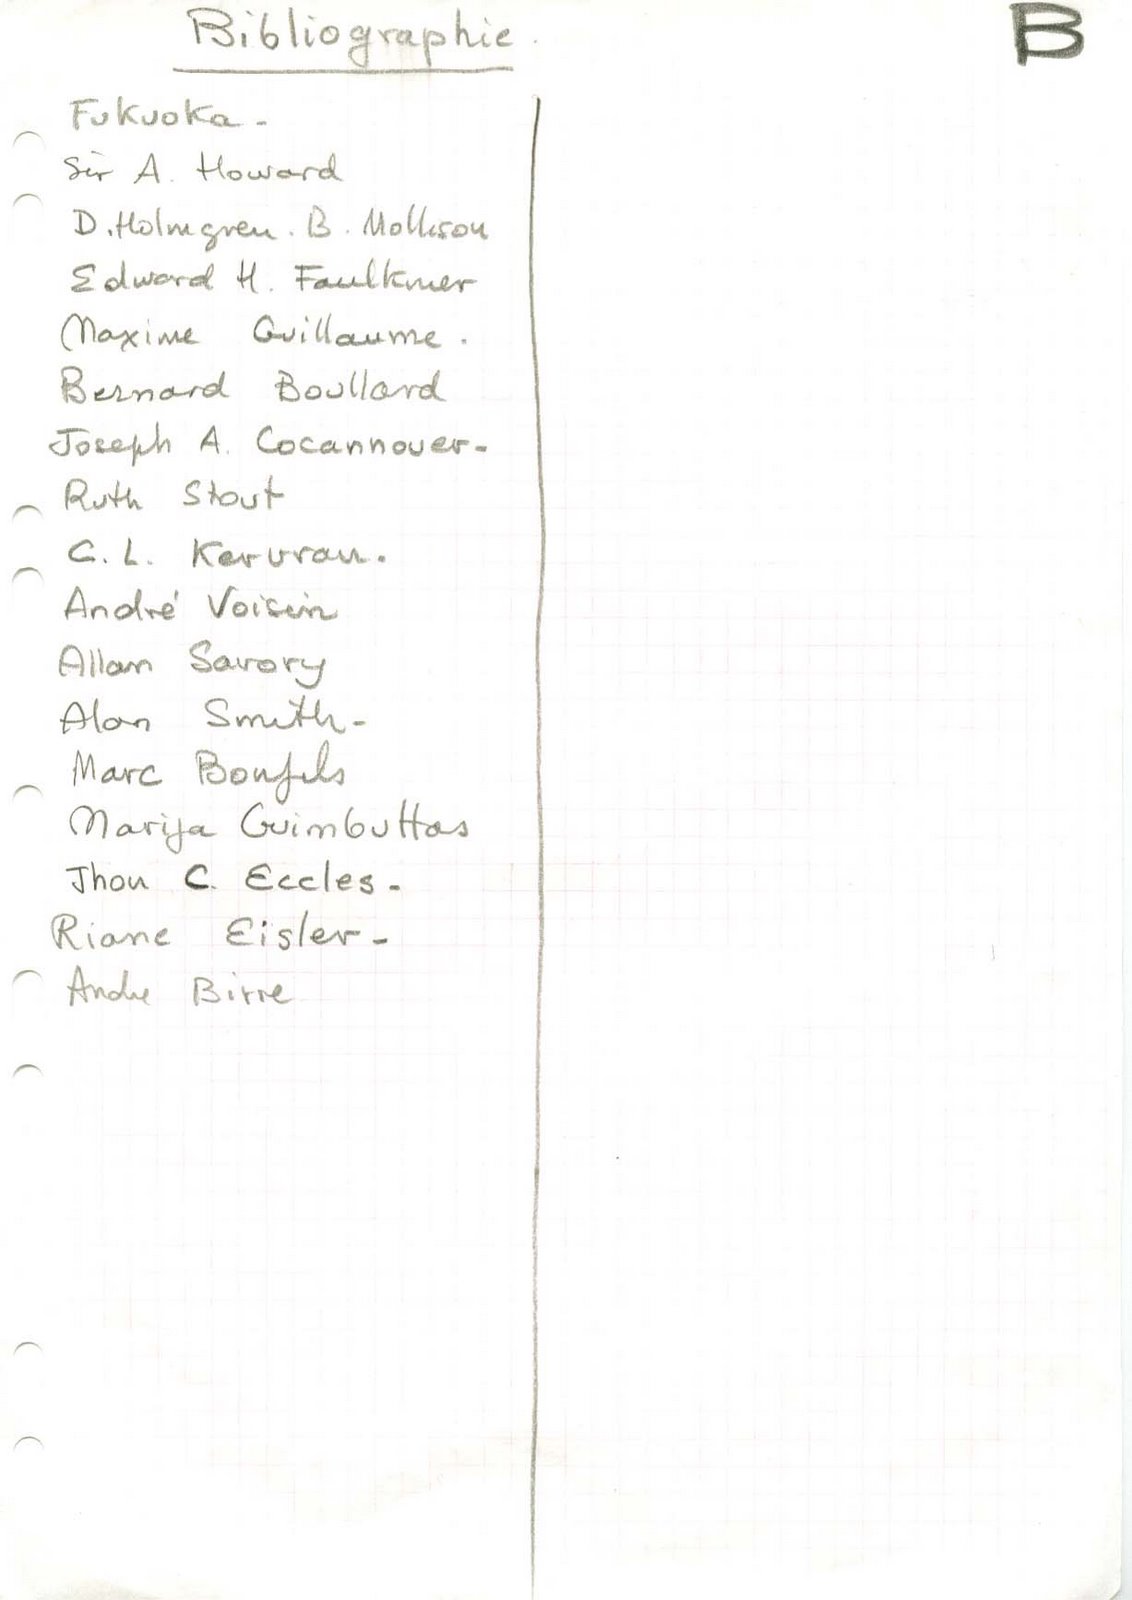 Bibliographie.
B
Fukuoka -
Sir A. Howard
D. Holmgren. B. Mollison
Edward H. Faulkner
Maxime Guillaume.
Bernard Boullard
Joseph A. Cocannouer-
Ruth Stout
C. L. Kervran.
André Voisin
Allan Savory
Alan Smith-
Marc Bonfils
Marija Guimbuttas
Jhon C. Eccles-
Riane Eisler-
Andre Birre